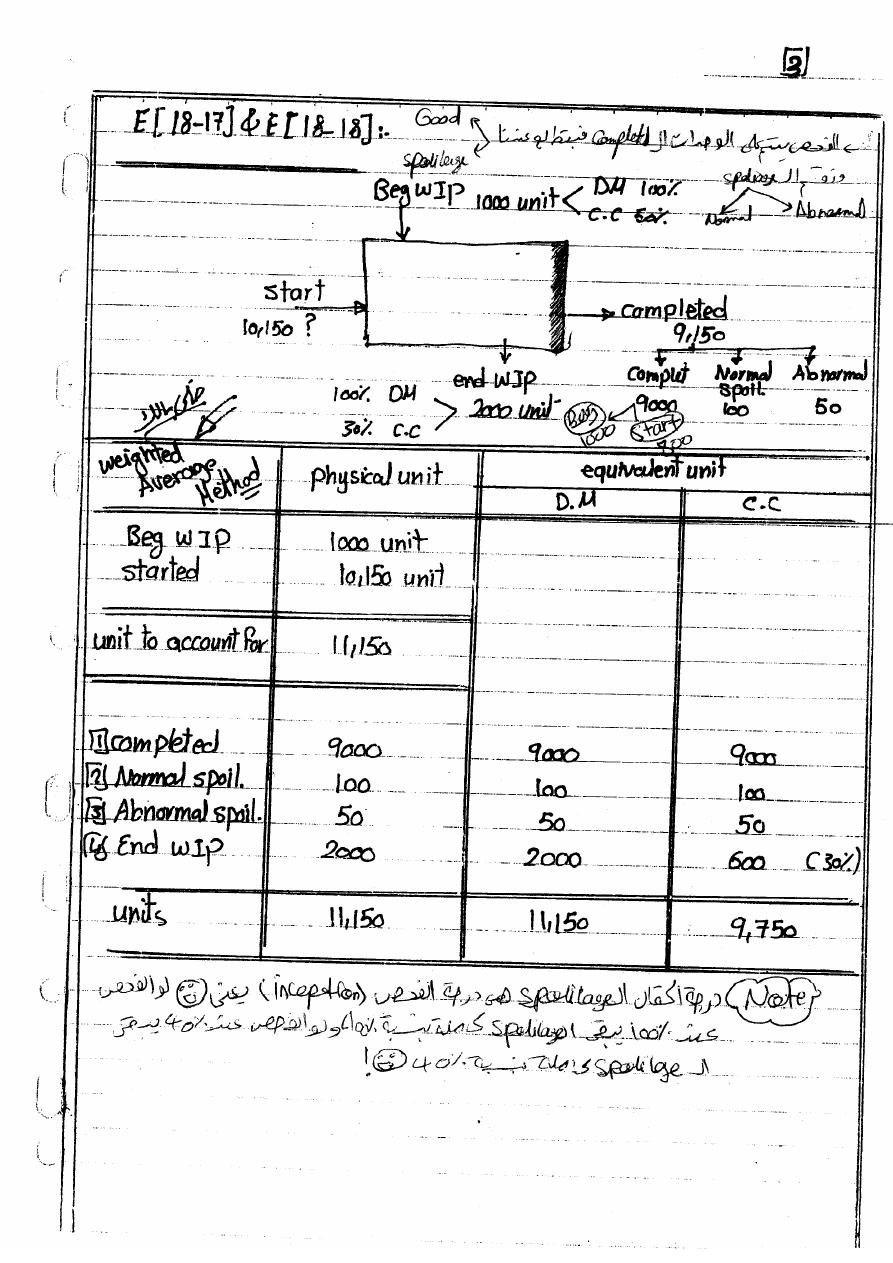 3
E[18-17] & E[18-18]:.
Good
الفحص الوحدات الـ Completed
spoilage
الـ spoilage
Normal
Abnormal
Beg WIP 1000 unit
DM 100%
C.C 50%
start
10,150 ?
completed
9,150
Complet
Normal Spoil.
Abnormal
9000
100
50
Beg
1000
start
end WIP
2000 unit
100% DM
30% C.C
Weighted Average Method
physical unit
equivalent unit
D.M
C.C
Beg WIP 1000 unit
started 10,150 unit
unit to account for 11,150
1 completed 9000 9000 9000
2 Normal spoil. 100 100 100
3 Abnormal spoil. 50 50 50
4 End WIP 2000 2000 600 (30%)
units 11,150 11,150 9,750
Note درجة اكتمال الـ spoilage هى درجة الفحص (incpetion) يعنى لو الفحص
عند 100% يبقى الـ spoilage كاملة بنسبة 100% ولو الفحص عند 40% يبقى
الـ spoilage كاملة بنسبة 40% !